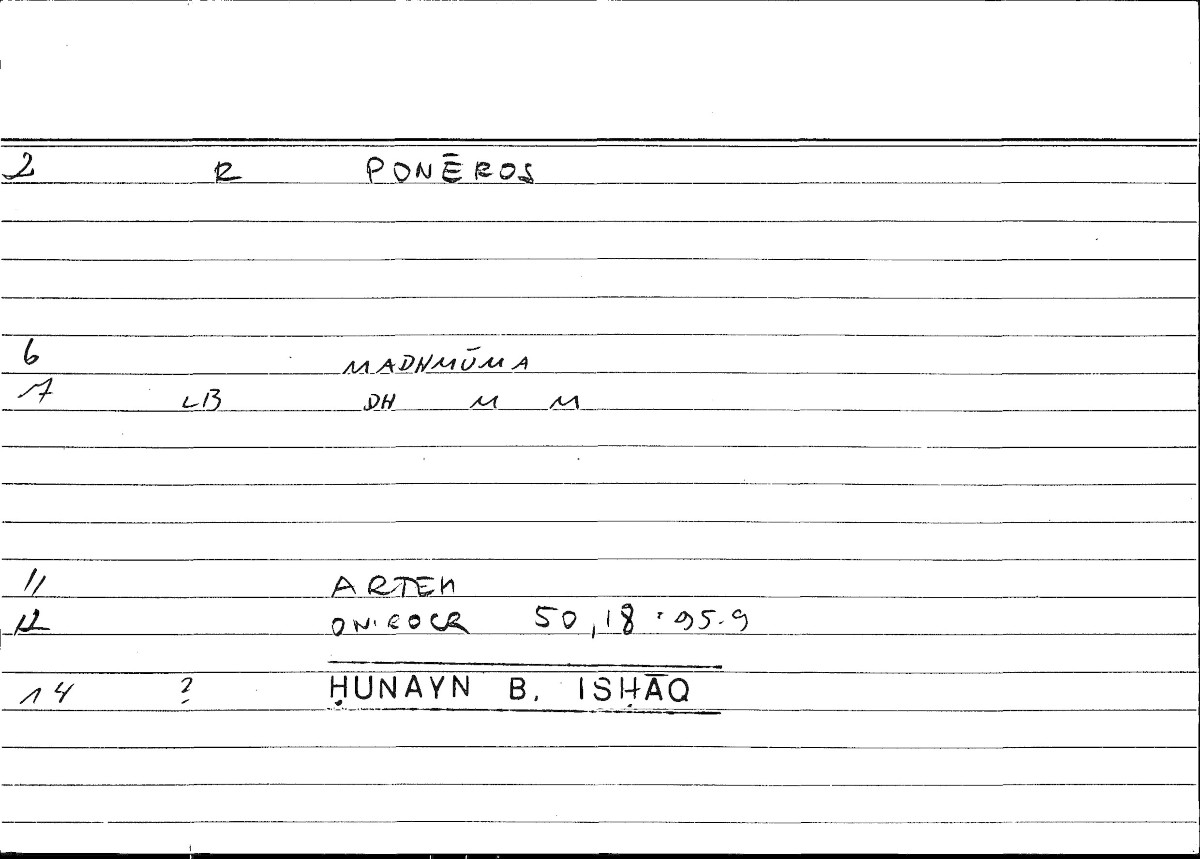 2 R PONĒROS
6 MADHMŪMA
7 LB DH M M
11 ARTEM
12 ONIROCR 50,18 : 95.9
14 ? ḤUNAYN B. ISḤĀQ